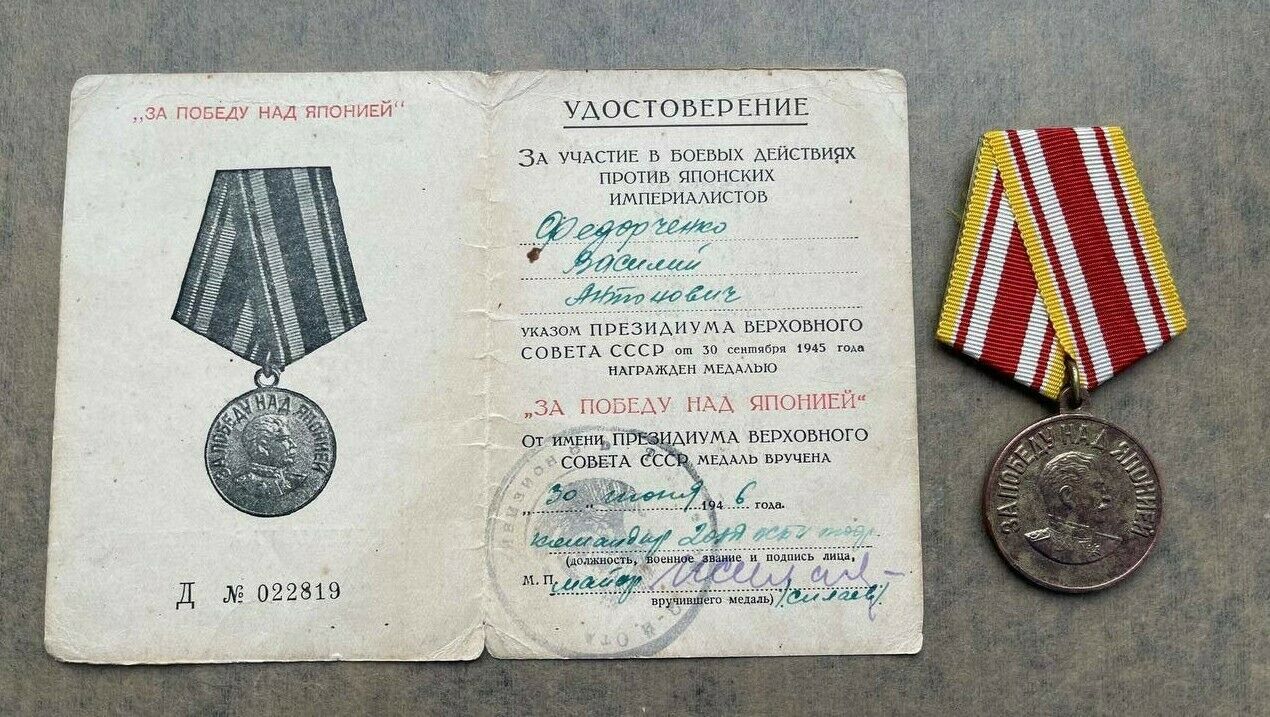 „ЗА ПОБЕДУ НАД ЯПОНИЕЙ“
ЗА ПОБЕДУ НАД ЯПОНИЕЙ
Д № 022819
УДОСТОВЕРЕНИЕ
ЗА УЧАСТИЕ В БОЕВЫХ ДЕЙСТВИЯХ
ПРОТИВ ЯПОНСКИХ
ИМПЕРИАЛИСТОВ
Федорченко
Василий
Антонович
УКАЗОМ ПРЕЗИДИУМА ВЕРХОВНОГО
СОВЕТА СССР от 30 сентября 1945 года
НАГРАЖДЕН МЕДАЛЬЮ
„ЗА ПОБЕДУ НАД ЯПОНИЕЙ“
ОТ ИМЕНИ ПРЕЗИДИУМА ВЕРХОВНОГО
СОВЕТА СССР МЕДАЛЬ ВРУЧЕНА
„30“ июня 1946 года.
командир
(должность, военное звание и подпись лица,
М. П. майор
вручившего медаль) /Силаев/
ЗА ПОБЕДУ НАД ЯПОНИЕЙ